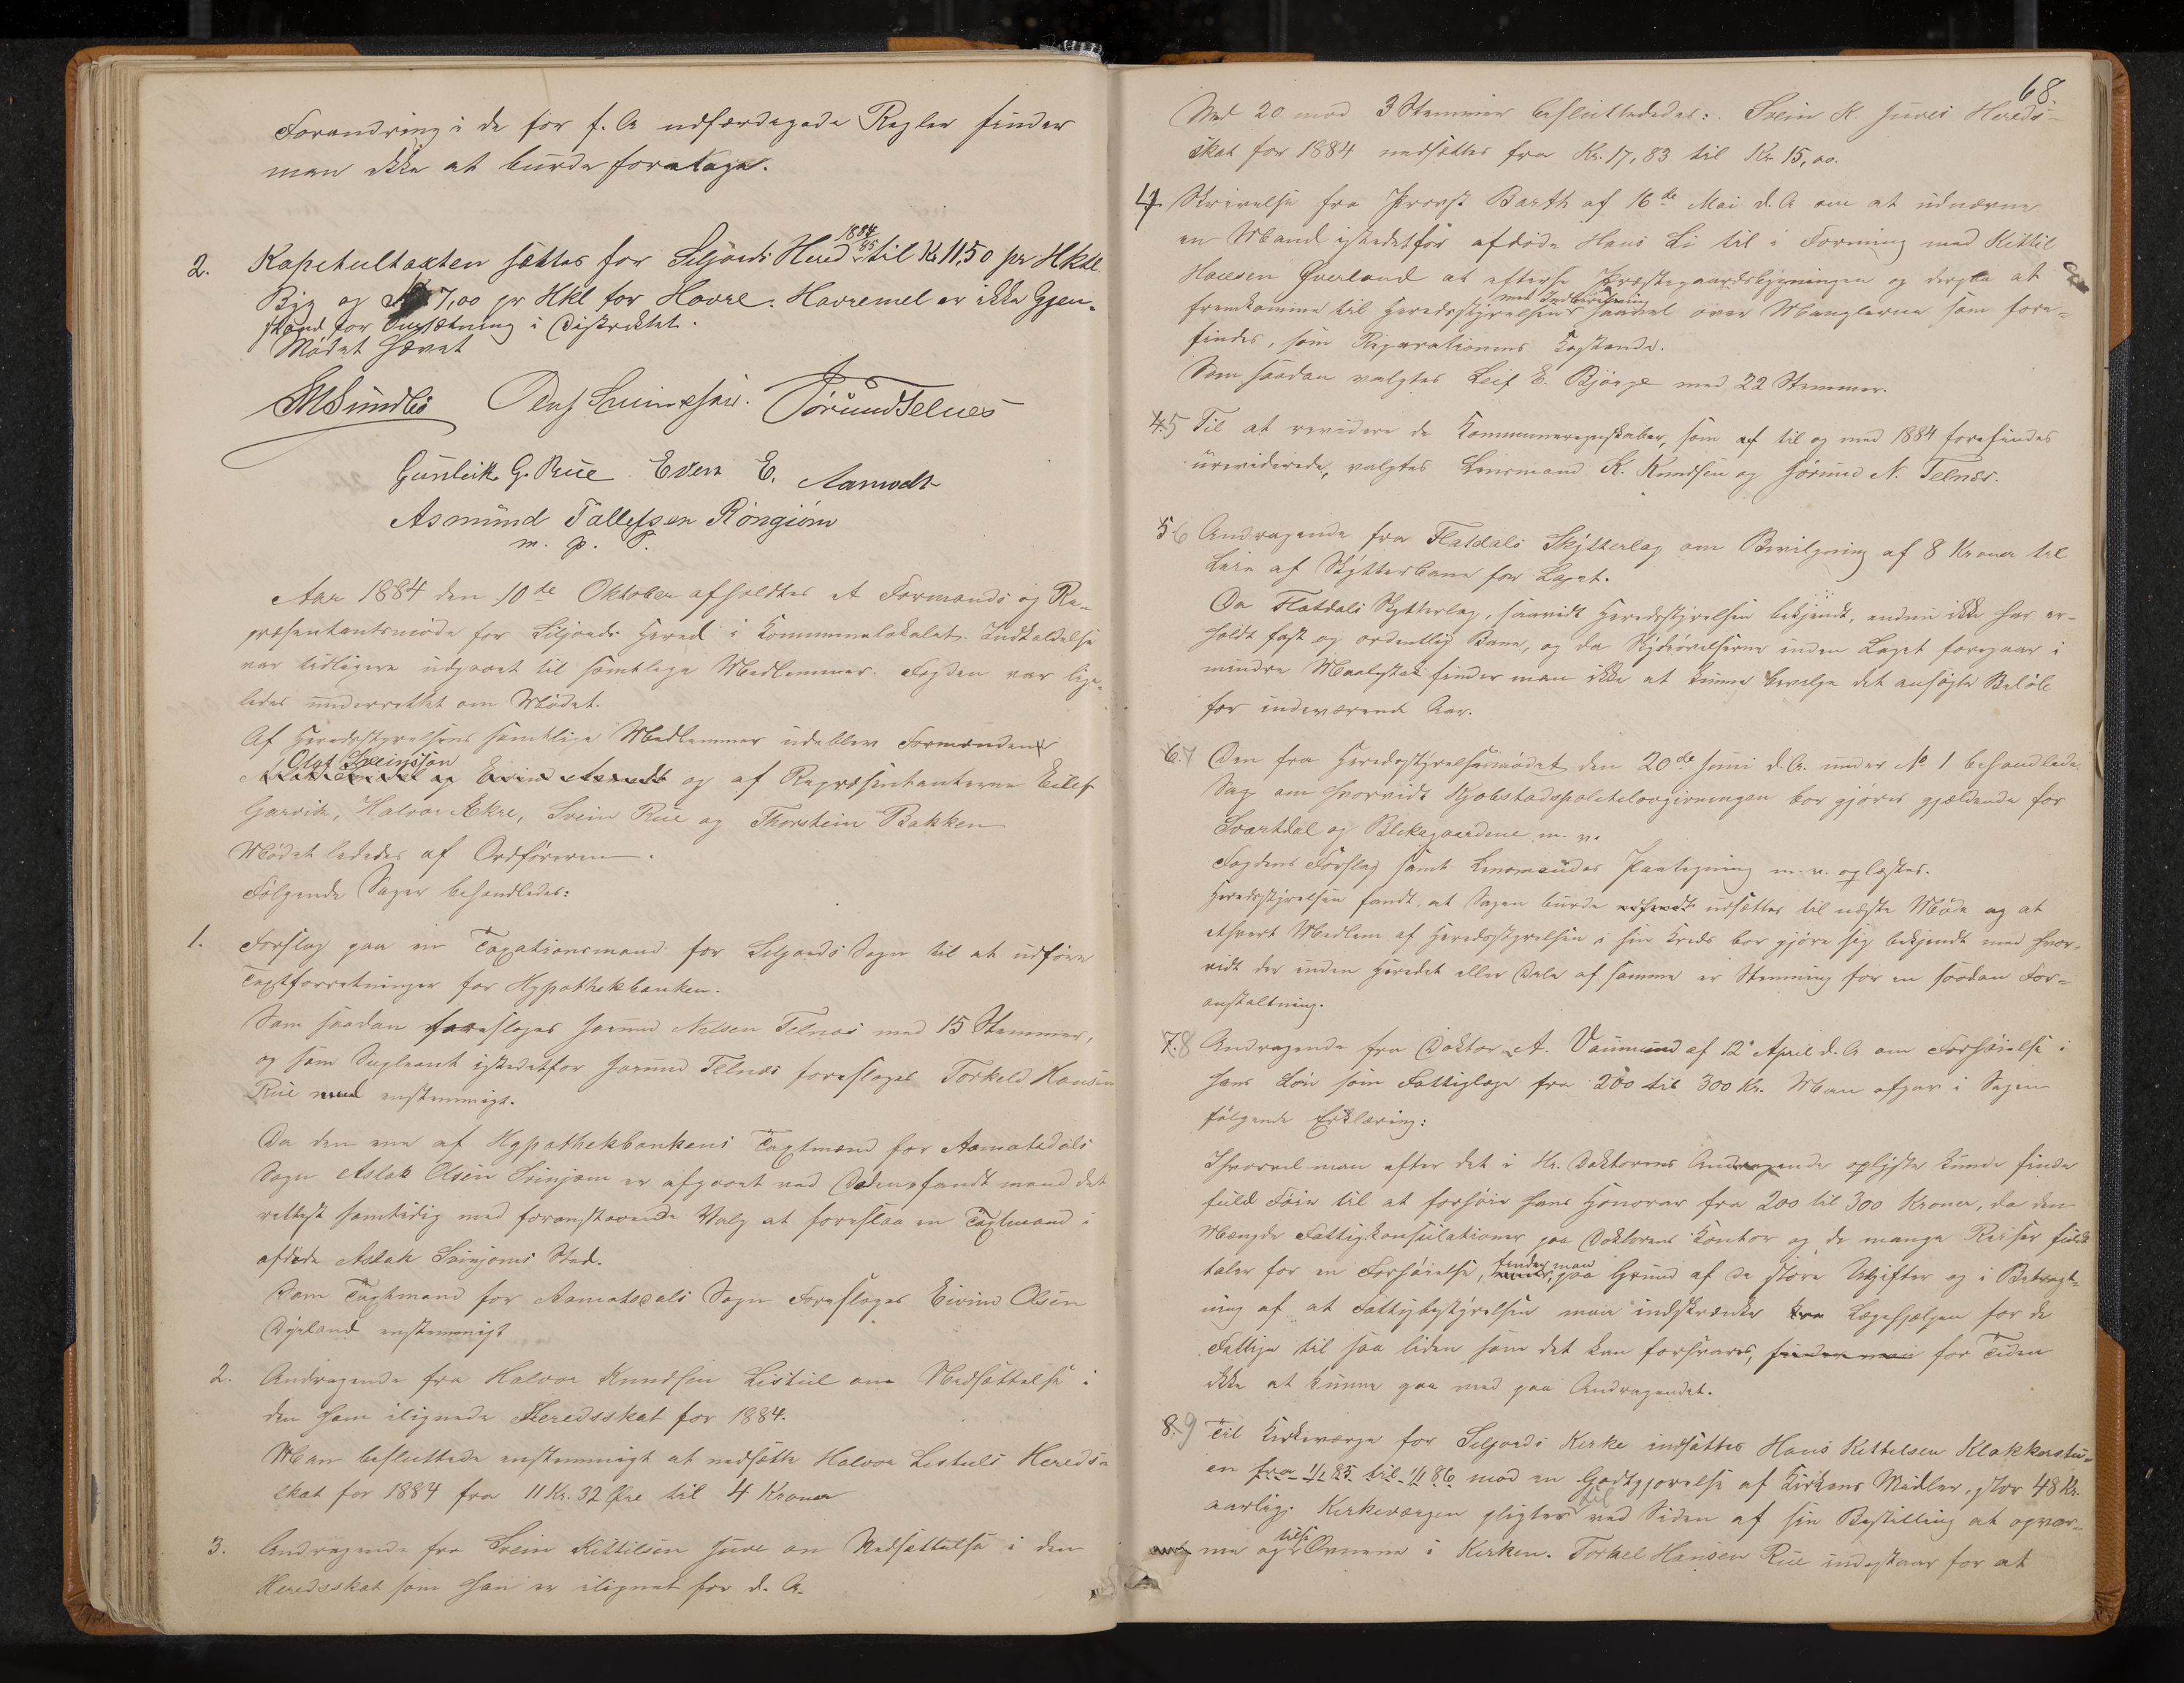 Forandring i de for f. A udfærdigede Regler finder
man ikke at burde foretage.
2. Kapitultaxten sættes for Siljords Hered 1884/85 til Kr 11,50 pr Hktl
Byg og Kr 7,00 pr Hkl for Havre. Havremel er ikke Gjen-
stand for Omsætning i Distriktet.
Mødet hævet
Olaf Sveinsson. Jörund Telnes
Gunleik G. Rue Even E. Aamodt
Asmund Tallefsen Rongjom
m. p. P.
Aar 1884 den 10de Oktober afholdtes et Formands og Re-
præsentantsmøde for Siljords Hered i Kommunelokalet. Indkaldelse
var tidligere udgaaet til samtlige Medlemmer. Fogden var lige-
ledes underrettet om Mødet.
Af Heredsstyrelsens samtlige Medlemmer udeblev Formanden
Olaf Sveinsson og af Repræsentanterne Eilef
Garvik, Halvor Aekre, Svein Rue og Thorstein Bakken
Mødet lededes af Ordføreren.
Følgende Sager behandledes:
1. Forslag paa en Taxationsmand for Siljords Sogn til at udføre
Taxtforretninger for Hypothekbanken.
Som saadan foresloges Jørund Nilsen Telnes med 15 Stemmer,
og som Supleant istedetfor Jørund Telnes foresloges Torkeld Hansen
Rue enstemmigt.
Da den ene af Hypothekbankens Taxtmænd for Aamotsdals
Sogn Aslak Olsen Svinjom er afgaaet ved Døden, fandt mand det
rettest samtidig med foranstaaende Valg at foreslaa en Taxtmand i
afdøde Aslak Svinjoms Sted.
Som Taxtmand for Aamotsdals Sogn Foresloges Eivind Olsen
Dyrland enstemmigt
2. Andragende fra Halvor Knudsen Listul om Nedsættelse i
den ham ilignede Heredsskat for 1884.
Man besluttede enstemmigt at nedsætte Halvor Listuls Hereds-
skat for 1884 fra 11 Kr. 32 Øre til 4 Kroner
3. Andragende fra Svein Kittilsen Juve om Nedsættelse i den
Heredsskat som han er ilignet for d. A.
68
Med 20 mod 3 Stemmer besluttededes: Svein K. Juves Hereds-
skat for 1884 nedsættes fra Kr. 17,83 til Kr 15,00.
4 Skrivelse fra Provst Barth af 16de Mai d. A om at udnævne
en Mand istedetfor afdøde Hans Li til i Forening med Kittil
Overland at efterse Præstegaardsbygningen og derpaa at
fremkomme til Heredsstyrelsen med Indberetning saavel over Manglerne som fore-
findes, som Reparationens Kostende.
Som saadan valgtes Leif E. Bjørge med 22 Stemmer.
4.5 Til at revidere de Kommuneregnskaber, som af til og med 1884 forefindes
ureviderede, valgtes Lensmand K. Knudsen og Jørund N. Telnes.
5.6 Andragende fra Flatdals Skytterlag om Bevilgning af 8 Kroner til
Leie af Skytterbane for Laget.
Da Flatdals Skytterlag, saavidt Heredsstyrelsen bekjendt, endnu ikke har er-
holdt fast og ordentlig Bane, og da Skydeøvelserne inden Laget foregaar i
mindre Maalestok finder man ikke at kunne bevilge det ansøgte Beløb
for indeværende Aar.
6.7 Den fra Heredsstyrelsesmødet den 20de Juni d. A. under No. 1 behandlede
Sag om hvorvidt Kjøbstadspolitilovgivningen bør gjøres gjældende for
Svartdal og Blekagaardene m. v.
Fogdens Forslag samt Lensmandes Paategning m. v. oplæstes.
Heredsstyrelsen fandt, at Sagen burde udsættes til næste Møde og at
ethvert Medlem af Heredsstyrelsen i sin Kreds bør gjøre sig bekjendt med hvor-
vidt der inden Heredet eller Dele af samme er Stemning for en saadan For-
anstaltning.
7.8 Andragende fra Doktor A. Vaumund af 12te April d. A om Forhøielse i
hans Løn som Fattiglæge fra 200 til 300 Kr. Man afgav i Sagen
følgende Erklæring:
Ihvorvel man efter det i Hr. Doktorens Andragende oplyste kunde finde
fuld Føie til at forhøie hans Honorar fra 200 til 300 Kroner, da den
Mængde Fattigkonsulationer paa Doktorens Kontor og de mange Reiser fuldt
taler for en Forhøielse, finder man paa Grund af de store Udgifter og i Betragt-
ning af at Fattigbestyrelsen maa indskrænke Lægehjælpen for de
Fattige til saa liden som det kan forsvares, finder man for Tiden
ikke at kunne gaa med paa Andragendet.
8.9 Til Kirkeværge for Siljords Kirke indsættes Hans Kittelsen Klokkerstu-
en fra 1/1 85 til 1/1 86 mod en Godtgjørelse af Kirkens Midler, stor 48 Kr.
aarlig. Kirkeværgen pligter ved Siden af sin Bestilling at opvar-
me og tilse Ovnene i Kirken. Torkel Hansen Rue indestaar for at